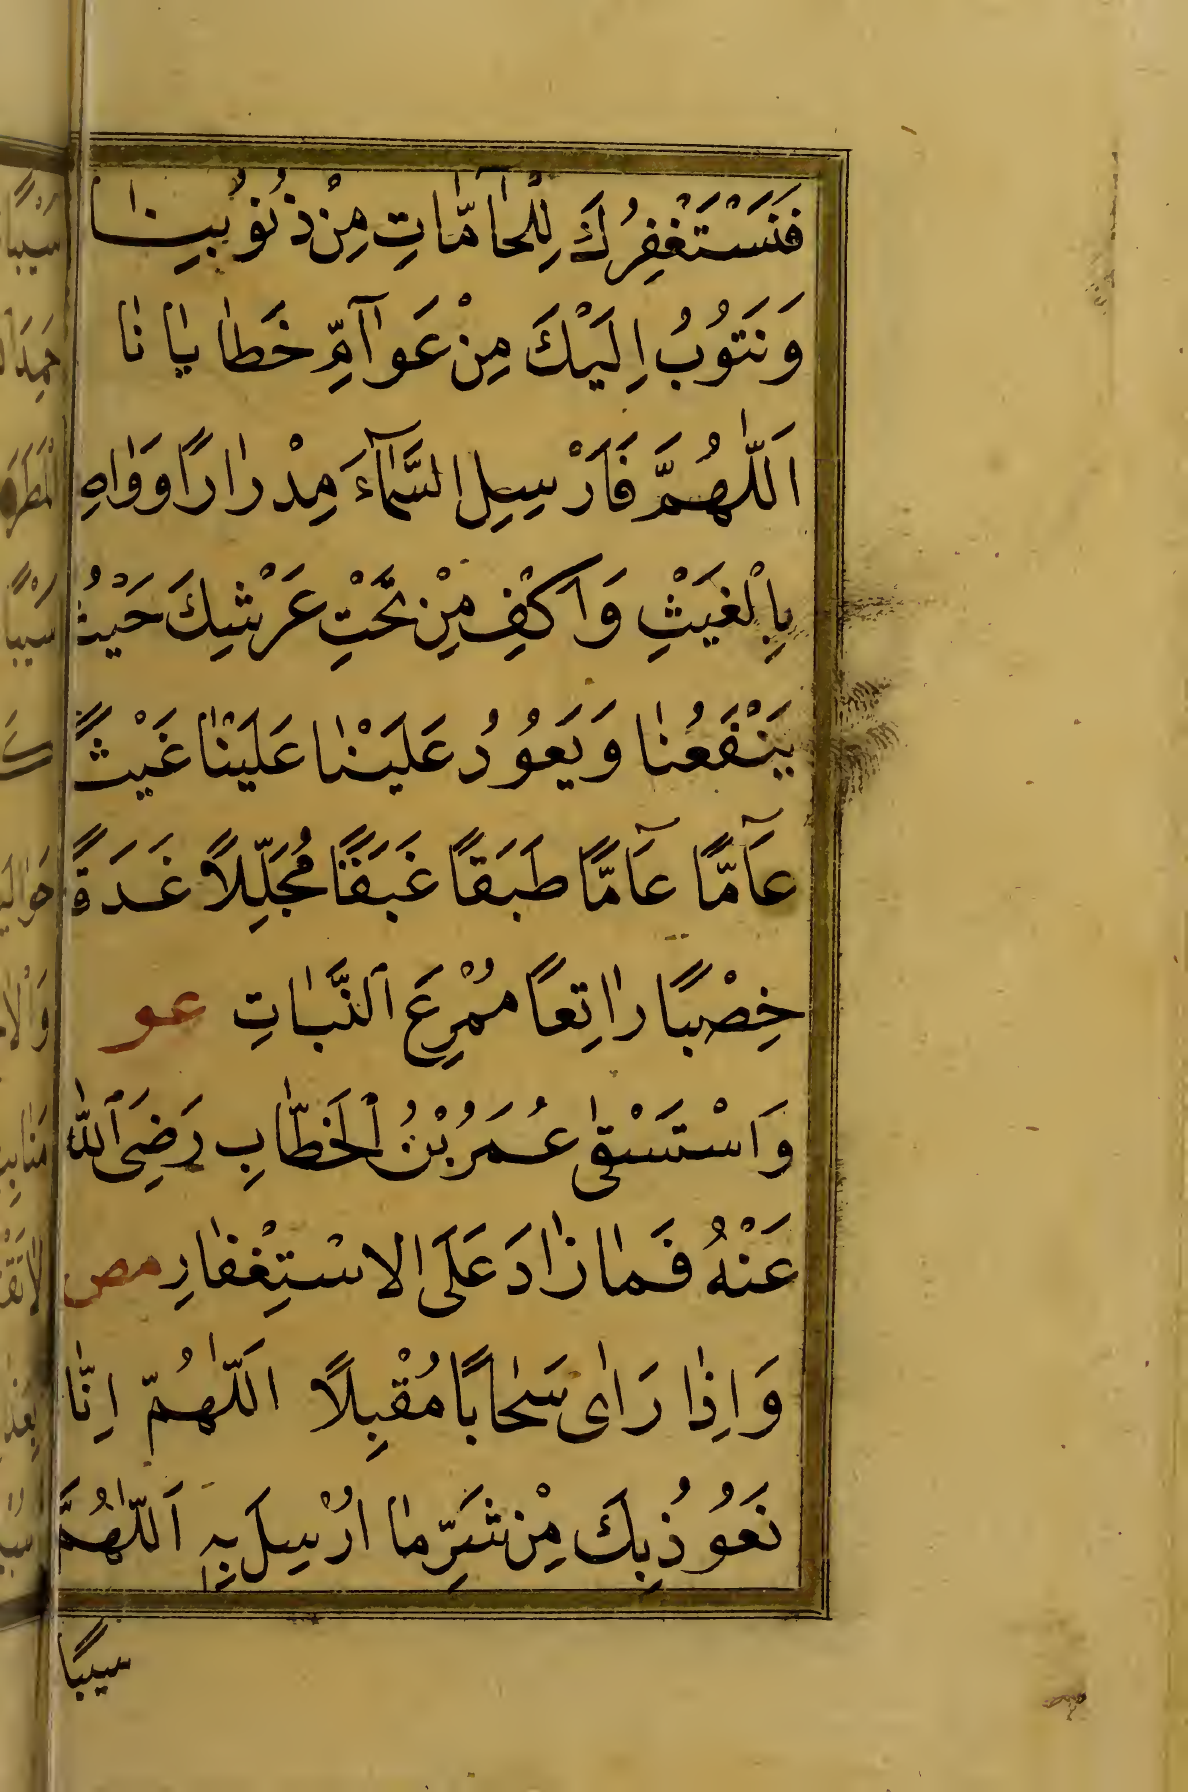 فَنَسْتَغْفِرُكَ لِلْحَامَّاتِ مِنْ ذُنُوبِنَا
وَنَتُوبُ اِلَيْكَ مِنْ عَوَآمِّ خَطَايَانَا
اَللّٰهُمَّ فَاَرْسِلِ السَّمَآءَ مِدْرَارًا وَوَاصِ
بِالْغَيْثِ وَاكْفِ مِنْ تَحْتِ عَرْشِكَ حَيْثُ
يَنْفَعُنَا وَيَعُودُ عَلَيْنَا عَلَيْنَا غَيْثًا
عَآمًّا عَآمًّا طَبَقًا غَبَقًا مُجَلِّلًا غَدَقًا
خِصْبًا رَاتِعًا مُمْرِعَ النَّبَاتِ عو
وَاسْتَسْقٰى عُمَرُ بْنُ الْخَطَّابِ رَضِىَ اللّٰهُ
عَنْهُ فَمَا زَادَ عَلَى الاسْتِغْفَارِ مص
وَاِذَا رَاٰى سَحَابًا مُقْبِلًا اَللّٰهُمَّ اِنَّا
نَعُوذُ بِكَ مِنْ شَرِّ مَا اُرْسِلَ بِهِ اَللّٰهُمَّ
سيبًا